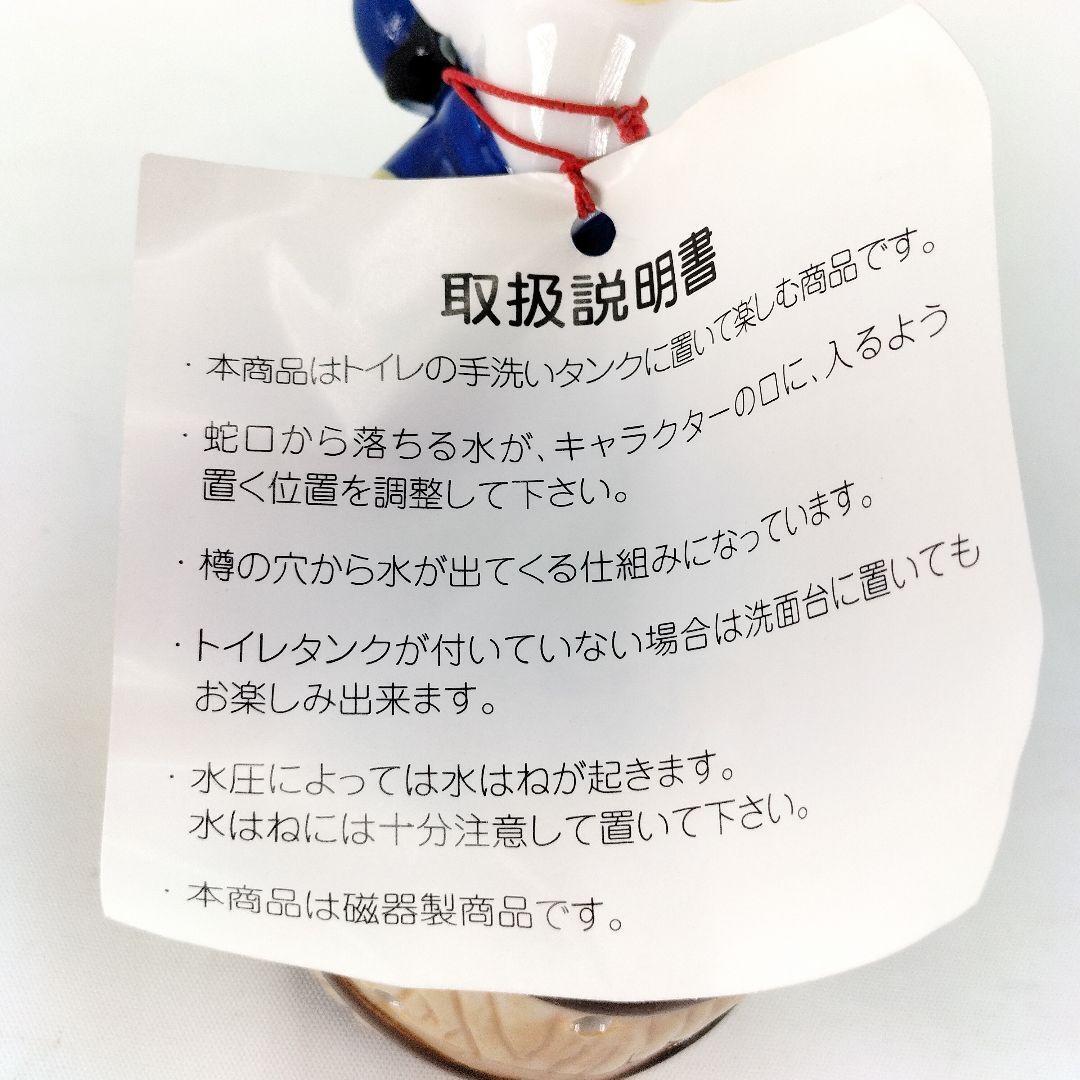 取扱説明書
・本商品はトイレの手洗いタンクに置いて楽しむ商品です。
・蛇口から落ちる水が、キャラクターの口に、入るよう
置く位置を調整して下さい。
・樽の穴から水が出てくる仕組みになっています。
・トイレタンクが付いていない場合は洗面台に置いても
お楽しみ出来ます。
・水圧によっては水はねが起きます。
水はねには十分注意して置いて下さい。
・本商品は磁器製商品です。